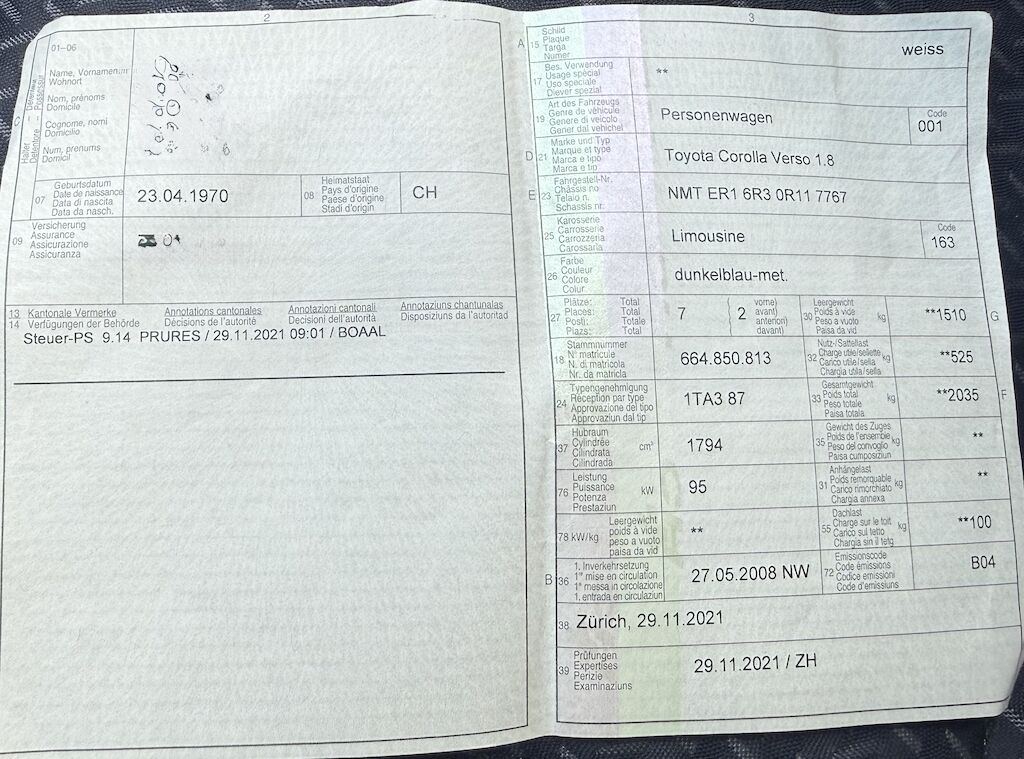 2
01–06
Name, Vornamen
Wohnort
Nom, prénoms
Domicile
Cognome, nomi
Domicilio
Num, prenums
Domicil
C
Halter – Détenteur
Detentore – Possessur
07
Geburtsdatum
Date de naissance
Data di nascita
Data da nasch.
23.04.1970
08
Heimatstaat
Pays d'origine
Paese d'origine
Stadi d'origin
CH
09
Versicherung
Assurance
Assicurazione
Assicuranza
13 Kantonale Vermerke Annotations cantonales Annotazioni cantonali Annotaziuns chantunalas
14 Verfügungen der Behörde Décisions de l'autorité Decisioni dell'autorità Disposiziuns da l'autoritad
Steuer-PS 9.14 PRURES / 29.11.2021 09:01 / BOAAL
3
A 15
Schild
Plaque
Targa
Numer
weiss
17
Bes. Verwendung
Usage spécial
Uso speciale
Diever spezial
**
19
Art des Fahrzeugs
Genre de véhicule
Genere di veicolo
Gener dal vehichel
Personenwagen
Code
001
D 21
Marke und Typ
Marque et type
Marca e tipo
Marca e tip
Toyota Corolla Verso 1.8
E 23
Fahrgestell-Nr.
Châssis no
Telaio n.
Schassis nr.
NMT ER1 6R3 0R11 7767
25
Karosserie
Carrosserie
Carrozzeria
Carossaria
Limousine
Code
163
26
Farbe
Couleur
Colore
Colur
dunkelblau-met.
27
Plätze: Total
Places: Total
Posti: Totale
Plazs: Total
7
2
vorne)
avant)
anteriori)
davant)
30
Leergewicht
Poids à vide
Peso a vuoto
Paisa da vid
kg
**1510
G
18
Stammnummer
N° matricule
N. di matricola
Nr. da matricla
664.850.813
32
Nutz-/Sattellast
Charge utile/sellette
Carico utile/sella
Chargia utila/sella
kg
**525
24
Typengenehmigung
Réception par type
Approvazione del tipo
Approvaziun dal tip
1TA3 87
33
Gesamtgewicht
Poids total
Peso totale
Paisa totala
kg
**2035
F
37
Hubraum
Cylindrée
Cilindrata
Cilindrada
cm³
1794
35
Gewicht des Zuges
Poids de l'ensemble
Peso del convoglio
Paisa cumposiziun
kg
**
76
Leistung
Puissance
Potenza
Prestaziun
kW
95
31
Anhängelast
Poids remorquable
Carico rimorchiato
Chargia annexa
kg
**
78 kW/kg
Leergewicht
poids à vide
peso a vuoto
paisa da vid
**
55
Dachlast
Charge sur le toit
Carico sul tetto
Chargia sin il tetg
kg
**100
B 36
1. Inverkehrsetzung
1re mise en circulation
1a messa in circolazione
1. entrada en circulaziun
27.05.2008 NW
72
Emissionscode
Code émissions
Codice emissioni
Code d'emissiuns
B04
38 Zürich, 29.11.2021
39
Prüfungen
Expertises
Perizie
Examinaziuns
29.11.2021 / ZH